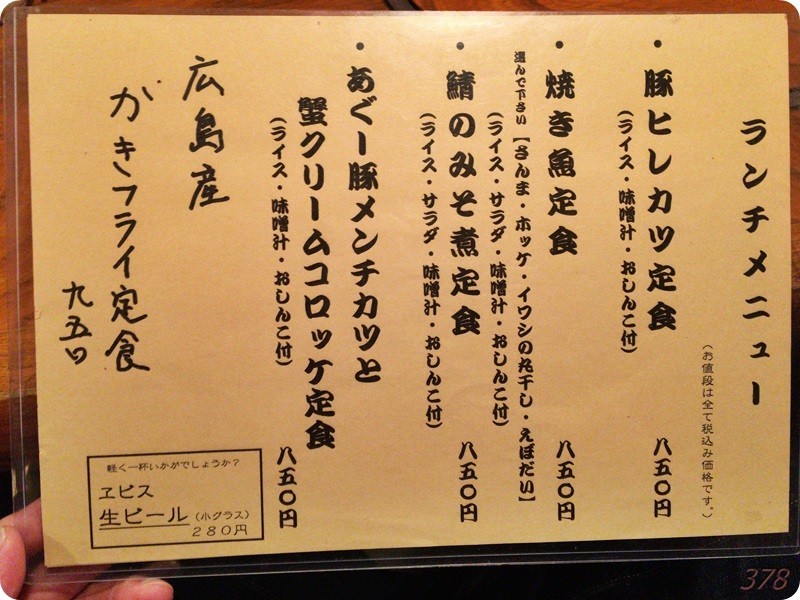 ランチメニュー
（お値段は全て税込み価格です。）
・豚ヒレカツ定食 八五〇円
（ライス・味噌汁・おしんこ付）
・焼き魚定食 八五〇円
選んで下さい【さんま・ホッケ・イワシの丸干し・えぼだい】
（ライス・サラダ・味噌汁・おしんこ付）
・鯖のみそ煮定食 八五〇円
（ライス・サラダ・味噌汁・おしんこ付）
・あぐー豚メンチカツと
蟹クリームコロッケ定食 八五〇円
（ライス・味噌汁・おしんこ付）
広島産
がきフライ定食
九五〇
軽く一杯いかがでしょうか？
ヱビス
生ビール（小グラス）
２８０円
378